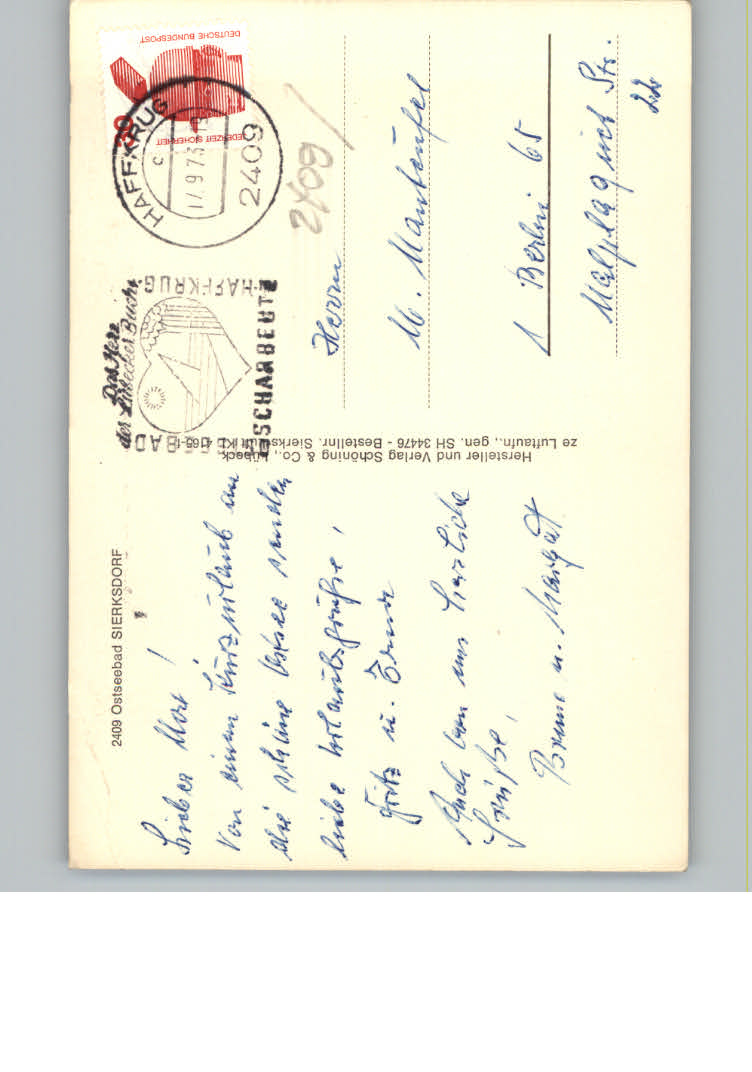 2409 Ostseebad SIERKSDORF
Lieber Max!
Von einem Kurzurlaub an
die schöne Ostsee senden
liebe Urlaubsgrüße,
Fritz u. Erna
Auch von uns herzliche
Grüße,
Bruno u. Margot
Hersteller und Verlag Schöning & Co., Lübeck
ze Luftaufn., gen. SH 34476 - Bestellnr. Sierks
Das Herz
der Lübecker Bucht
SEEBAD
HAFFKRUG
SCHARBEUTZ
DEUTSCHE BUNDESPOST
JEDERZEIT SICHERHEIT
30
HAFFKRUG
c
17.9.73
2409
2409
Herrn
M. Manteufel
1 Berlin 65
Malplaquet Str.